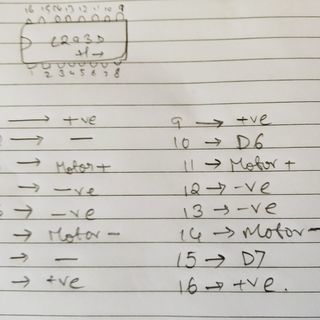 16 15 14 13 12 11 10 9
L293D
1 2 3 4 5 6 7 8
→ +ve
→ —
→ Motor+
→ -ve
→ -ve
→ Motor-
→ —
→ +ve
9 → +ve
10 → D6
11 → Motor+
12 → -ve
13 → -ve
14 → Motor-
15 → D7
16 → +ve.